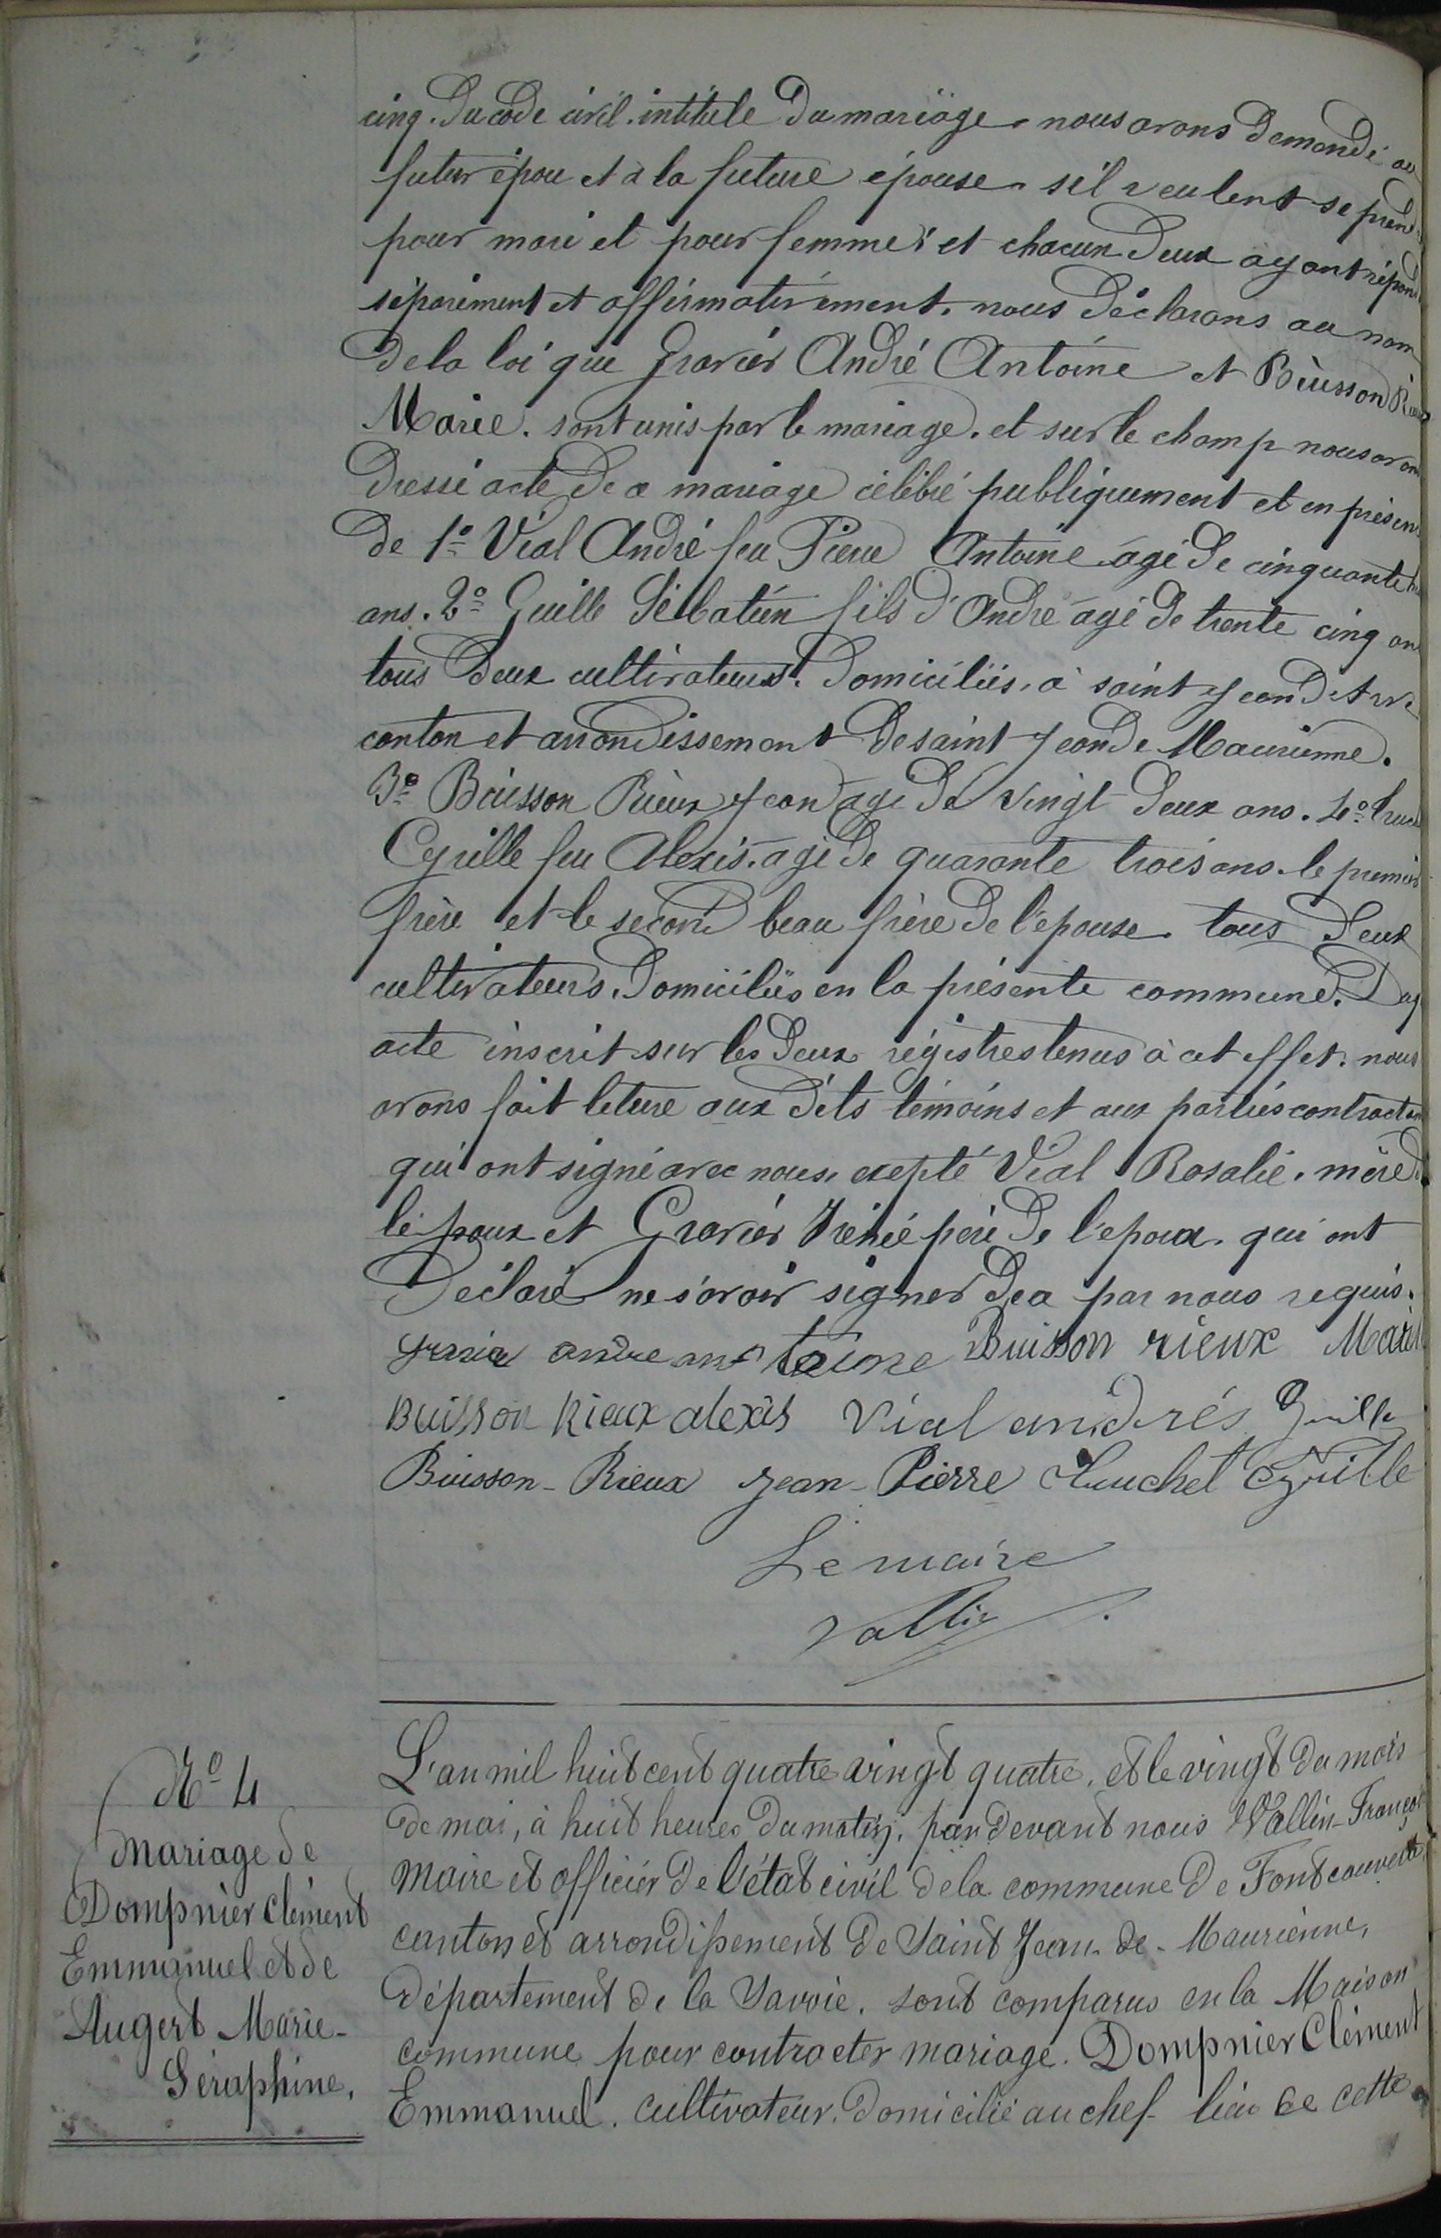 cinq. du code civil. intitule du mariage. nous avons demandé au
futur épou et à la future épouse. s'il veulent se prend
pour mari et pour femme; et chacun deux ayant répond
séparément et affirmativement. nous déclarons au nom
de la loi que Gravier André Antoine et Buisson Rieux
Marie. sont unis par le mariage. et sur le champ nous avon
dressé acte de ce mariage célébré publiquement et en présen
de 1º Vial André feu Pierre Antoine agé de cinquante
ans. 2º Guille Sébatien fils d'André agé de trente cinq an
tous deux cultivateurs. domiciliés. à saint Jean d'Arve
canton et arrondissement de saint Jean de Maurienne.
3º Buisson Rieux Jean agé de vingt deux ans. 4º Truch
Cyrille feu Alexis. agé de quarante trois ans. le premier
frère et le second beau frère de l'épouse. tous deux
cultivateurs. domiciliés en la présente commune. Du
acte inscrit sur les deux régistres tenus à cet effet. nous
avons fait leture aux dits témoins et aux parties contractan
qui ont signé avec nous, exepté Vial Rosalie. mère d
l'époux et Gravier Irénée père de l'époux. qui ont
déclaré ne savoir signer de ce par nous requis.
gravier andre antoine Buisson rieux Marie
Buisson Rieux alexis Vial andrés Guille
Buisson-Rieux Jean-Pierre Truchet Cyrille
Le maire
Vallin
Nº 4
Mariage de
Dompnier Clément
Emmanuel et de
Augert Marie-
Séraphine.
L'an mil huit cent quatre vingt quatre, et le vingt du mois
de mai, à huit heures du matin, par devant nous Vallin-François
Maire et officier de l'état civil de la commune de Fontcouverte,
canton et arrondissement de Saint Jean-de-Maurienne,
département de la Savoie. sont comparus en la Maison
commune pour contracter mariage. Dompnier Clément
Emmanuel. cultivateur. domicilié au chef-lieu de cette